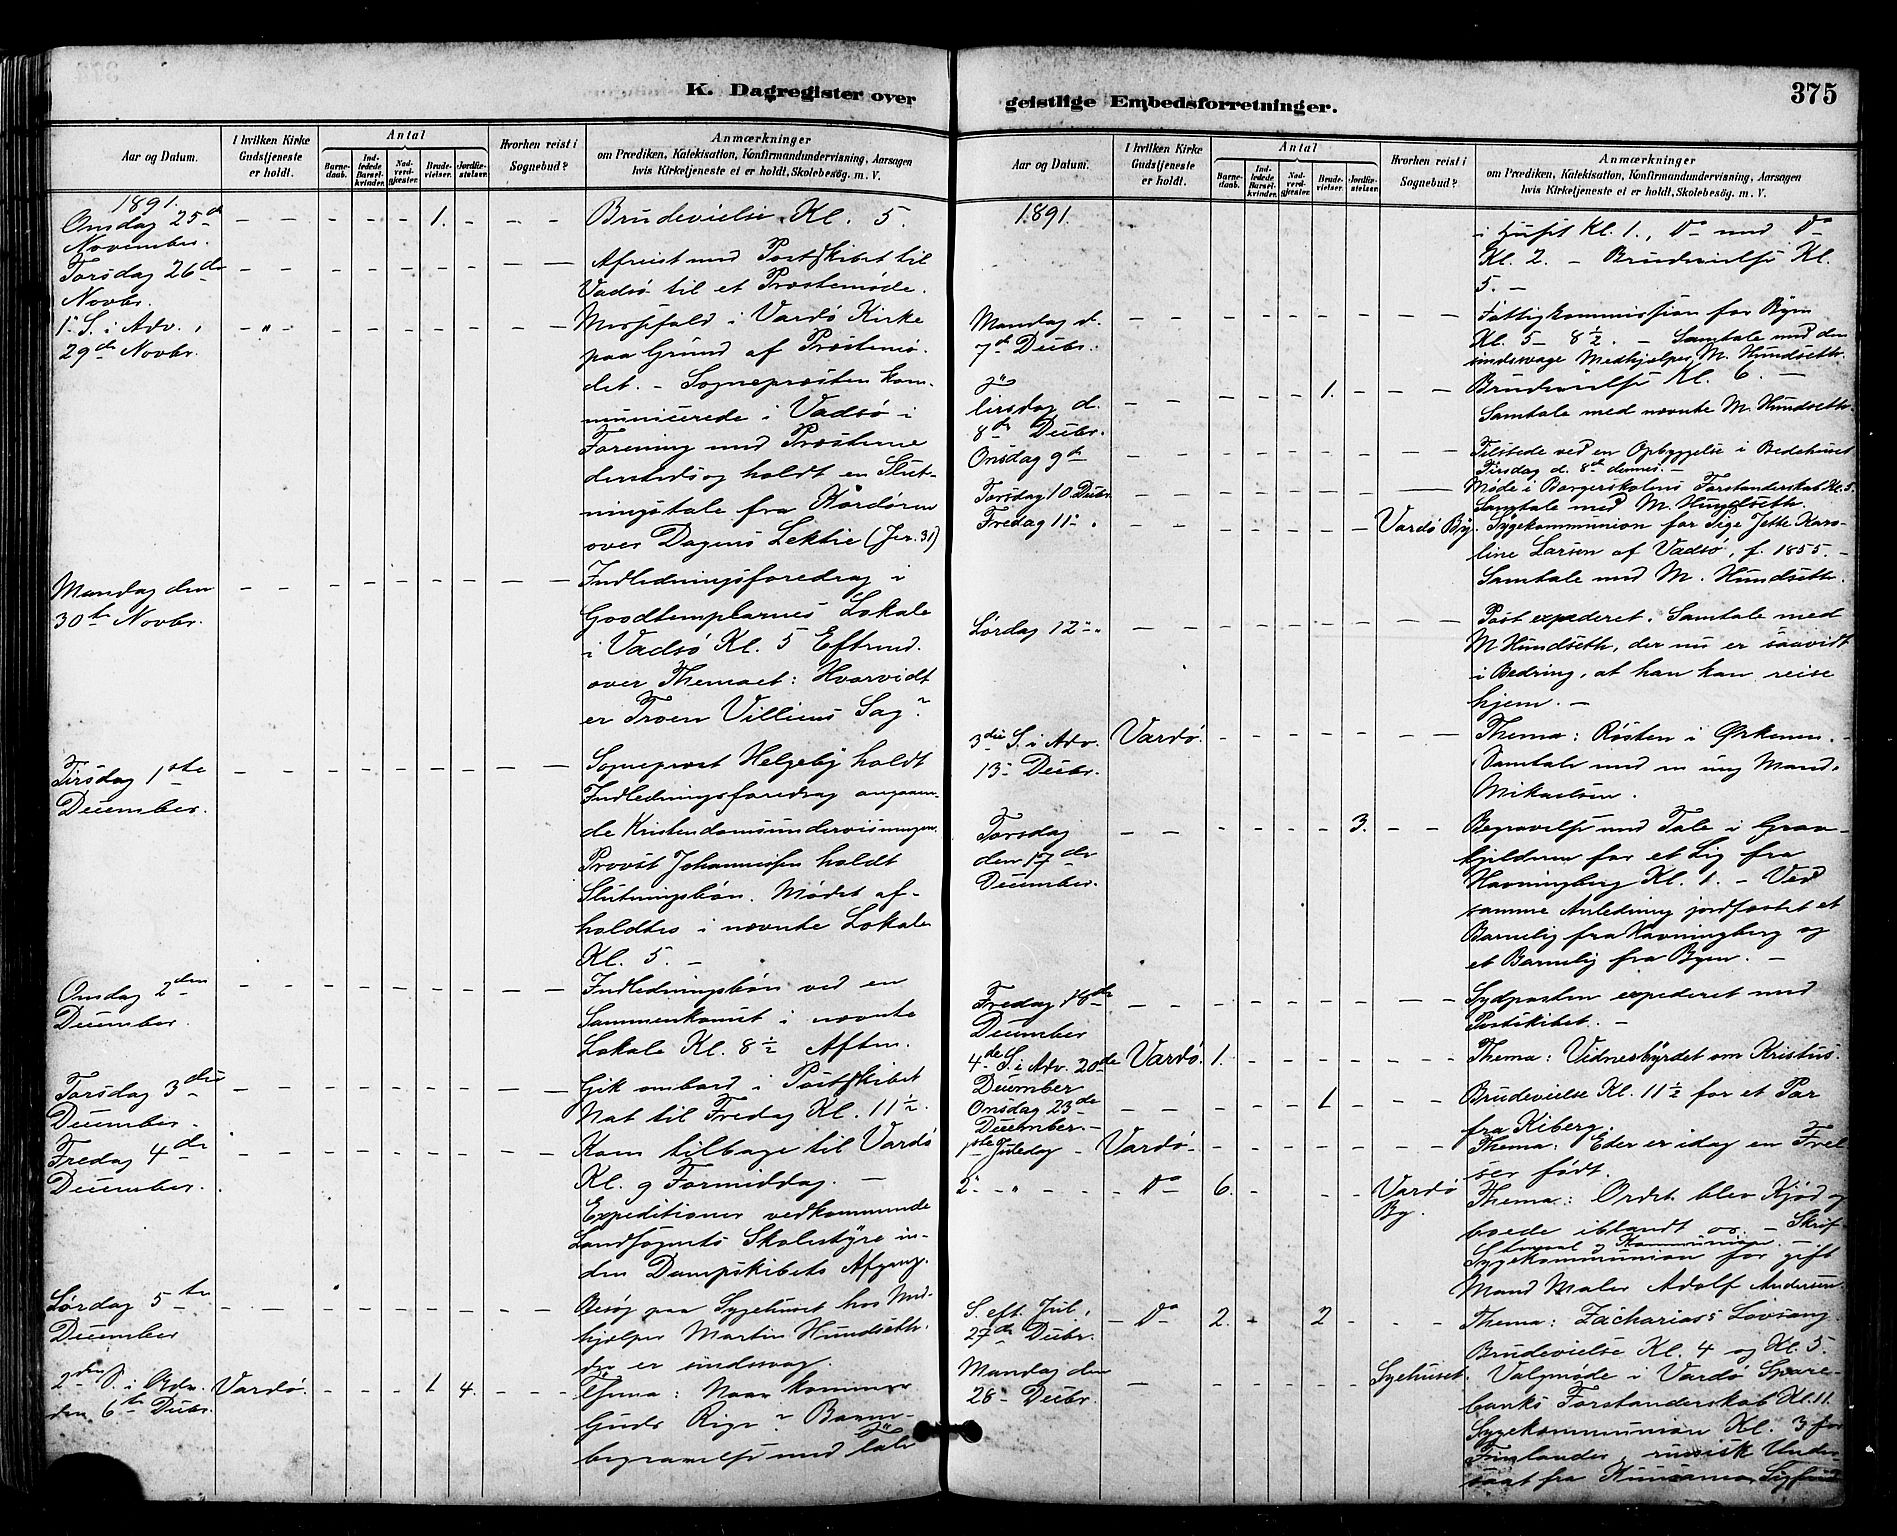 K. Dagregister over
Aar og Datum.
I hvilken Kirke Gudstjeneste er holdt.
Antal
Barnedaab.
Indledede Barselkvinder.
Nadverdgjester.
Brudevielser.
Jordfæstelser.
Hvorhen reist i Sognebud?
Anmærkninger
om Prædiken, Katekisation, Konfirmandundervisning, Aarsagen
hvis Kirketjeneste ei er holdt, Skolebesøg. m. V.
1891.
Onsdag 25de November. 1. Brudevielse Kl. 5.
Torsdag 26de Novbr. Afreist med Postskibet til
Vadsø til et Præstemøde.
1ste S. i Adv. 29de Novbr. Messefald i Vardø Kirke
paa Grund af Præstemø-
det. – Sognepræsten kom-
municerede i Vadsø i
Forening med Præsterne
dersteds og holdt en Slut-
ningstale fra Kordøren
over Dagens Lektie (Jer. 31)
Mandag den 30te Novbr. Indledningsforedrag i
Goodtemplarnes Lokale
i Vadsø Kl. 5 Eftmd.
over Themaet: Hvorvidt
er Troen Villiens Sag?
Tirsdag 1ste December. Sogneprest Helgeby holdt
Indledningsforedrag angaaen-
de Kristendomsundervisningen.
Provst Johannessen holdt
Slutningsbøn. Mødet af-
holdtes i nævnte Lokale
Kl. 5. –
Onsdag 2den December. Indledningsbøn ved en
Sammenkomst i nævnte
Lokale Kl. 8½ Aften.
Torsdag 3die December. Gik ombord i Postskibet
Nat til Fredag Kl. 11½.
Fredag 4de December. Kom tilbage til Vardø
Kl. 9 Formiddag. –
Expeditioner vedkommende
Landsognets Skolestyre in-
den Dampskibets Afgang.
Lørdag 5te December Besøg paa Sygehuset hos Med-
hjælper Martin Hundseth.
der er sindssvag.
2den S. i Adv. den 6te Decbr. Vardø. 1 4. Thema: Naar kommer
Guds Rige? Barne-
begravelse med Tale
geistlige Embedsforretninger.
375
Aar og Datum.
I hvilken Kirke Gudstjeneste er holdt.
Antal
Barnedaab.
Indledede Barselkvinder.
Nadverdgjester.
Brudevielser.
Jordfæstelser.
Hvorhen reist i Sognebud?
Anmærkninger
om Prædiken, Katekisation, Konfirmandundervisning, Aarsagen
hvis Kirketjeneste ei er holdt, Skolebesøg, m. V.
1891.
i Huset Kl. 1., Do med Do
Kl. 2. – Brudevielse Kl.
5. –
Mandag d. 7de Decbr. Fattigkommission for Byen
Kl. 5 – 8½. – Samtale med den
sindssvage Medhjælper M. Hundseth.
Tirsdag d. 8de Decbr. 1. Brudevielse Kl. 6. –
Samtale med nævnte M. Hundseth.
Onsdag 9de Tilstede ved en Opbyggelse i Bedehuset
Tirsdag d. 8de dennes. –
Torsdag 10 Decbr. Møde i Borgerskolens Forstanderskab Kl. 5.
Samtale med M. Hundseth.
Fredag 11te Vardø By. Sygekommunion for Pige Jette Karo-
line Larsen af Vadsø, f. 1855. –
Samtale med M. Hundseth.
Lørdag 12te Post expederet. Samtale med
M Hundseth, der nu er saavidt
i Bedring, at han kan reise
hjem. –
3die S. i Adv. 13de Decbr. Vardø. Thema: Røsten i Ørkenen. –
Samtale med en ung Mand,
Mikaelsen.
Torsdag den 17de December. 3. Begravelse med Tale i Grav-
kjelderen for et Lig fra
Havningberg Kl. 1. – Ved
samme Anledning jordfæstet et
Barnelig fra Havningberg og
et Barnelig fra Byen. –
Fredag 18de December Sydposten expederet med
Postskibet. –
4de S. i Adv. 20de December Vardø. 1. Thema: Vidnesbyrdet om Kristus.
Onsdag 23de December. – 1 Brudevielse Kl. 11½ for et Par
fra Kiberg.
1ste Juledag – Vardø – Thema: Eder er idag en Frel-
ser født.
2den " Do 6. Vardø By. Thema: Ordet blev Kjød og
boede iblandt os. – Skrif-
temaal og Kommunion.
Sygekommunion for gift
Mand Maler Adolf Andersen.
S. eft. Jul, 27de Decbr. Do 2. 2 Thema: Zacharias's Lovsang.
Brudevielse Kl. 4 og Kl. 5.
Mandag den 28de Decbr. Sygehuset. Valgmøde i Vardø Spare-
banks Forstanderskab Kl. 11.
Sygekommunion Kl. 3 for
Finlænder russisk Under-
saat fra Kuusamo, Sigfrid